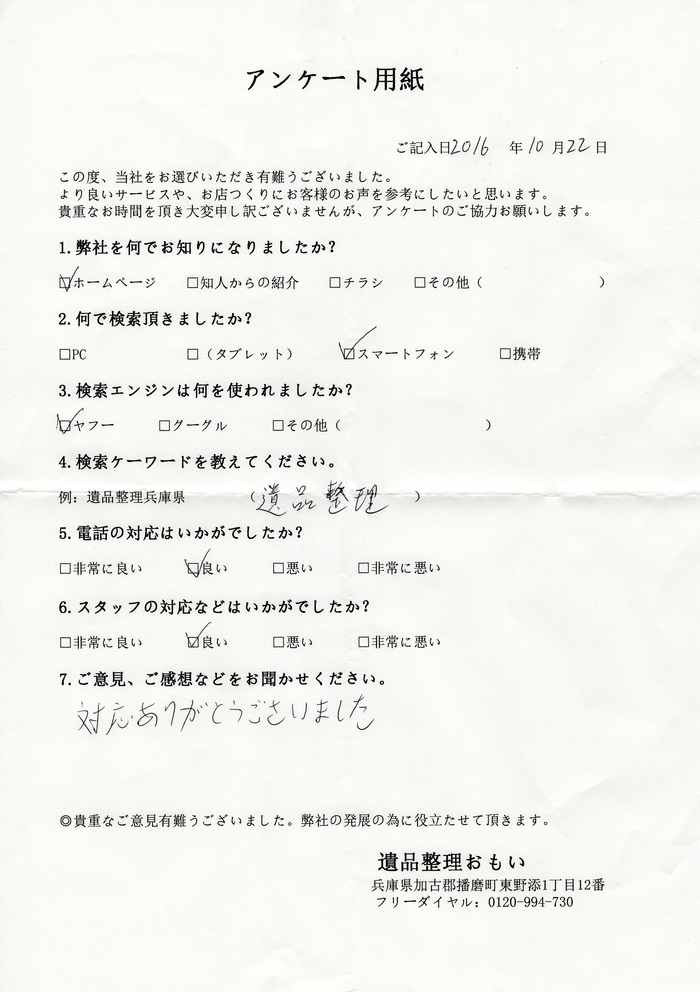 アンケート用紙
ご記入日2016 年10月22日
この度、当社をお選びいただき有難うございました。
より良いサービスや、お店つくりにお客様のお声を参考にしたいと思います。
貴重なお時間を頂き大変申し訳ございませんが、アンケートのご協力お願いします。
1.弊社を何でお知りになりましたか?
☑ホームページ □知人からの紹介 □チラシ □その他( )
2.何で検索頂きましたか?
□PC □(タブレット) ☑スマートフォン □携帯
3.検索エンジンは何を使われましたか?
☑ヤフー □グーグル □その他( )
4.検索ケーワードを教えてください。
例:遺品整理兵庫県 (遺品整理 )
5.電話の対応はいかがでしたか?
□非常に良い ☑良い □悪い □非常に悪い
6.スタッフの対応などはいかがでしたか?
□非常に良い ☑良い □悪い □非常に悪い
7.ご意見、ご感想などをお聞かせください。
対応ありがとうございました
◎貴重なご意見有難うございました。弊社の発展の為に役立たせて頂きます。
遺品整理おもい
兵庫県加古郡播磨町東野添1丁目12番
フリーダイヤル:0120-994-730